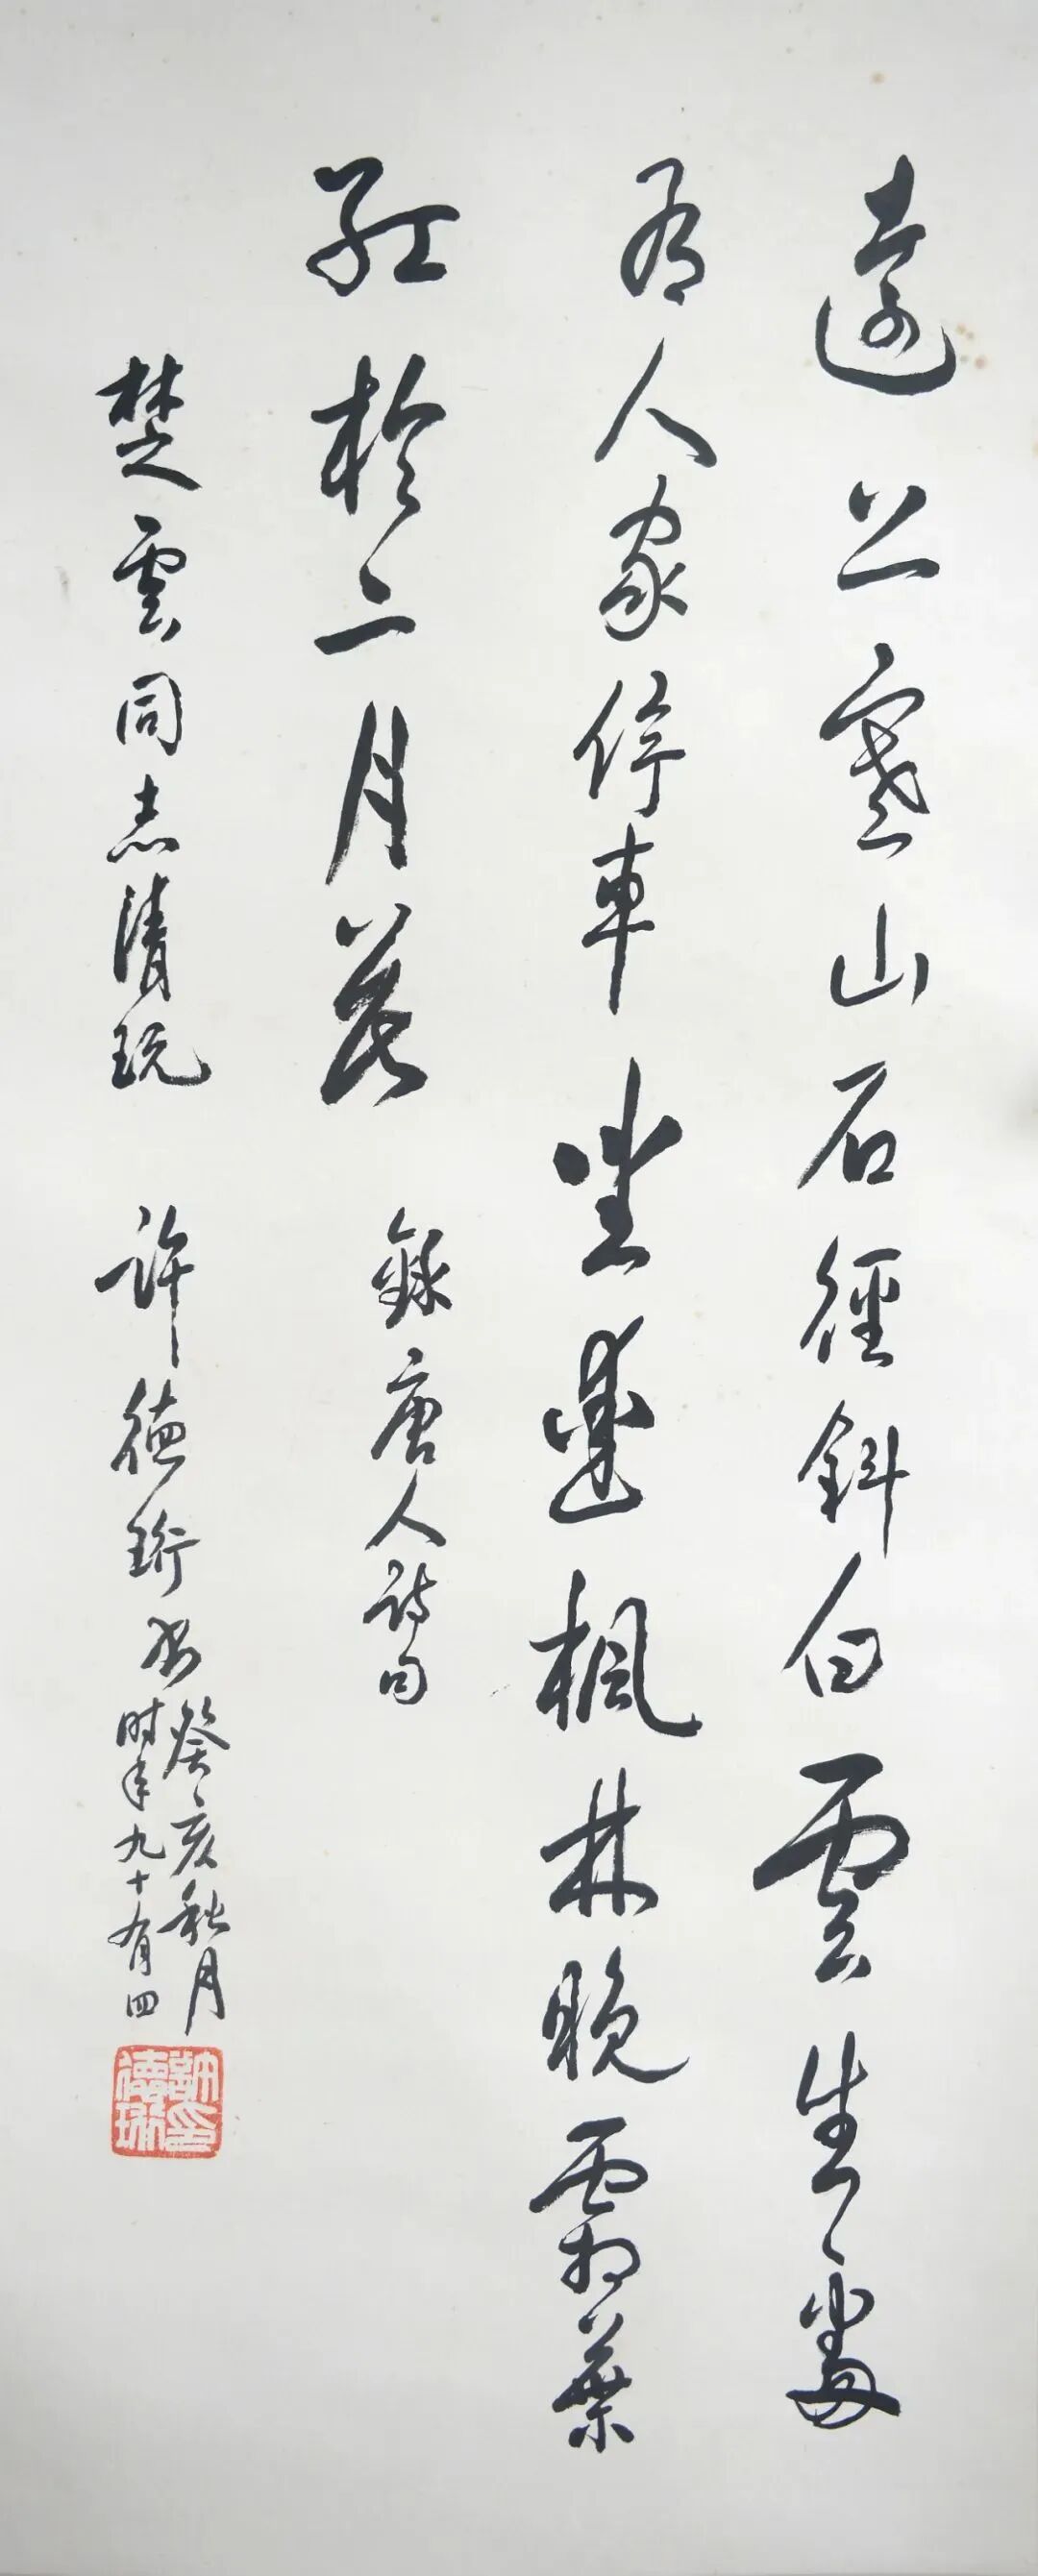 遠上寒山石徑斜白雲生處
有人家停車坐愛楓林晚霜葉
紅於二月花
錄唐人詩句
楚雲同志清玩
許德珩書
癸亥秋月
时年九十有四
許德珩印